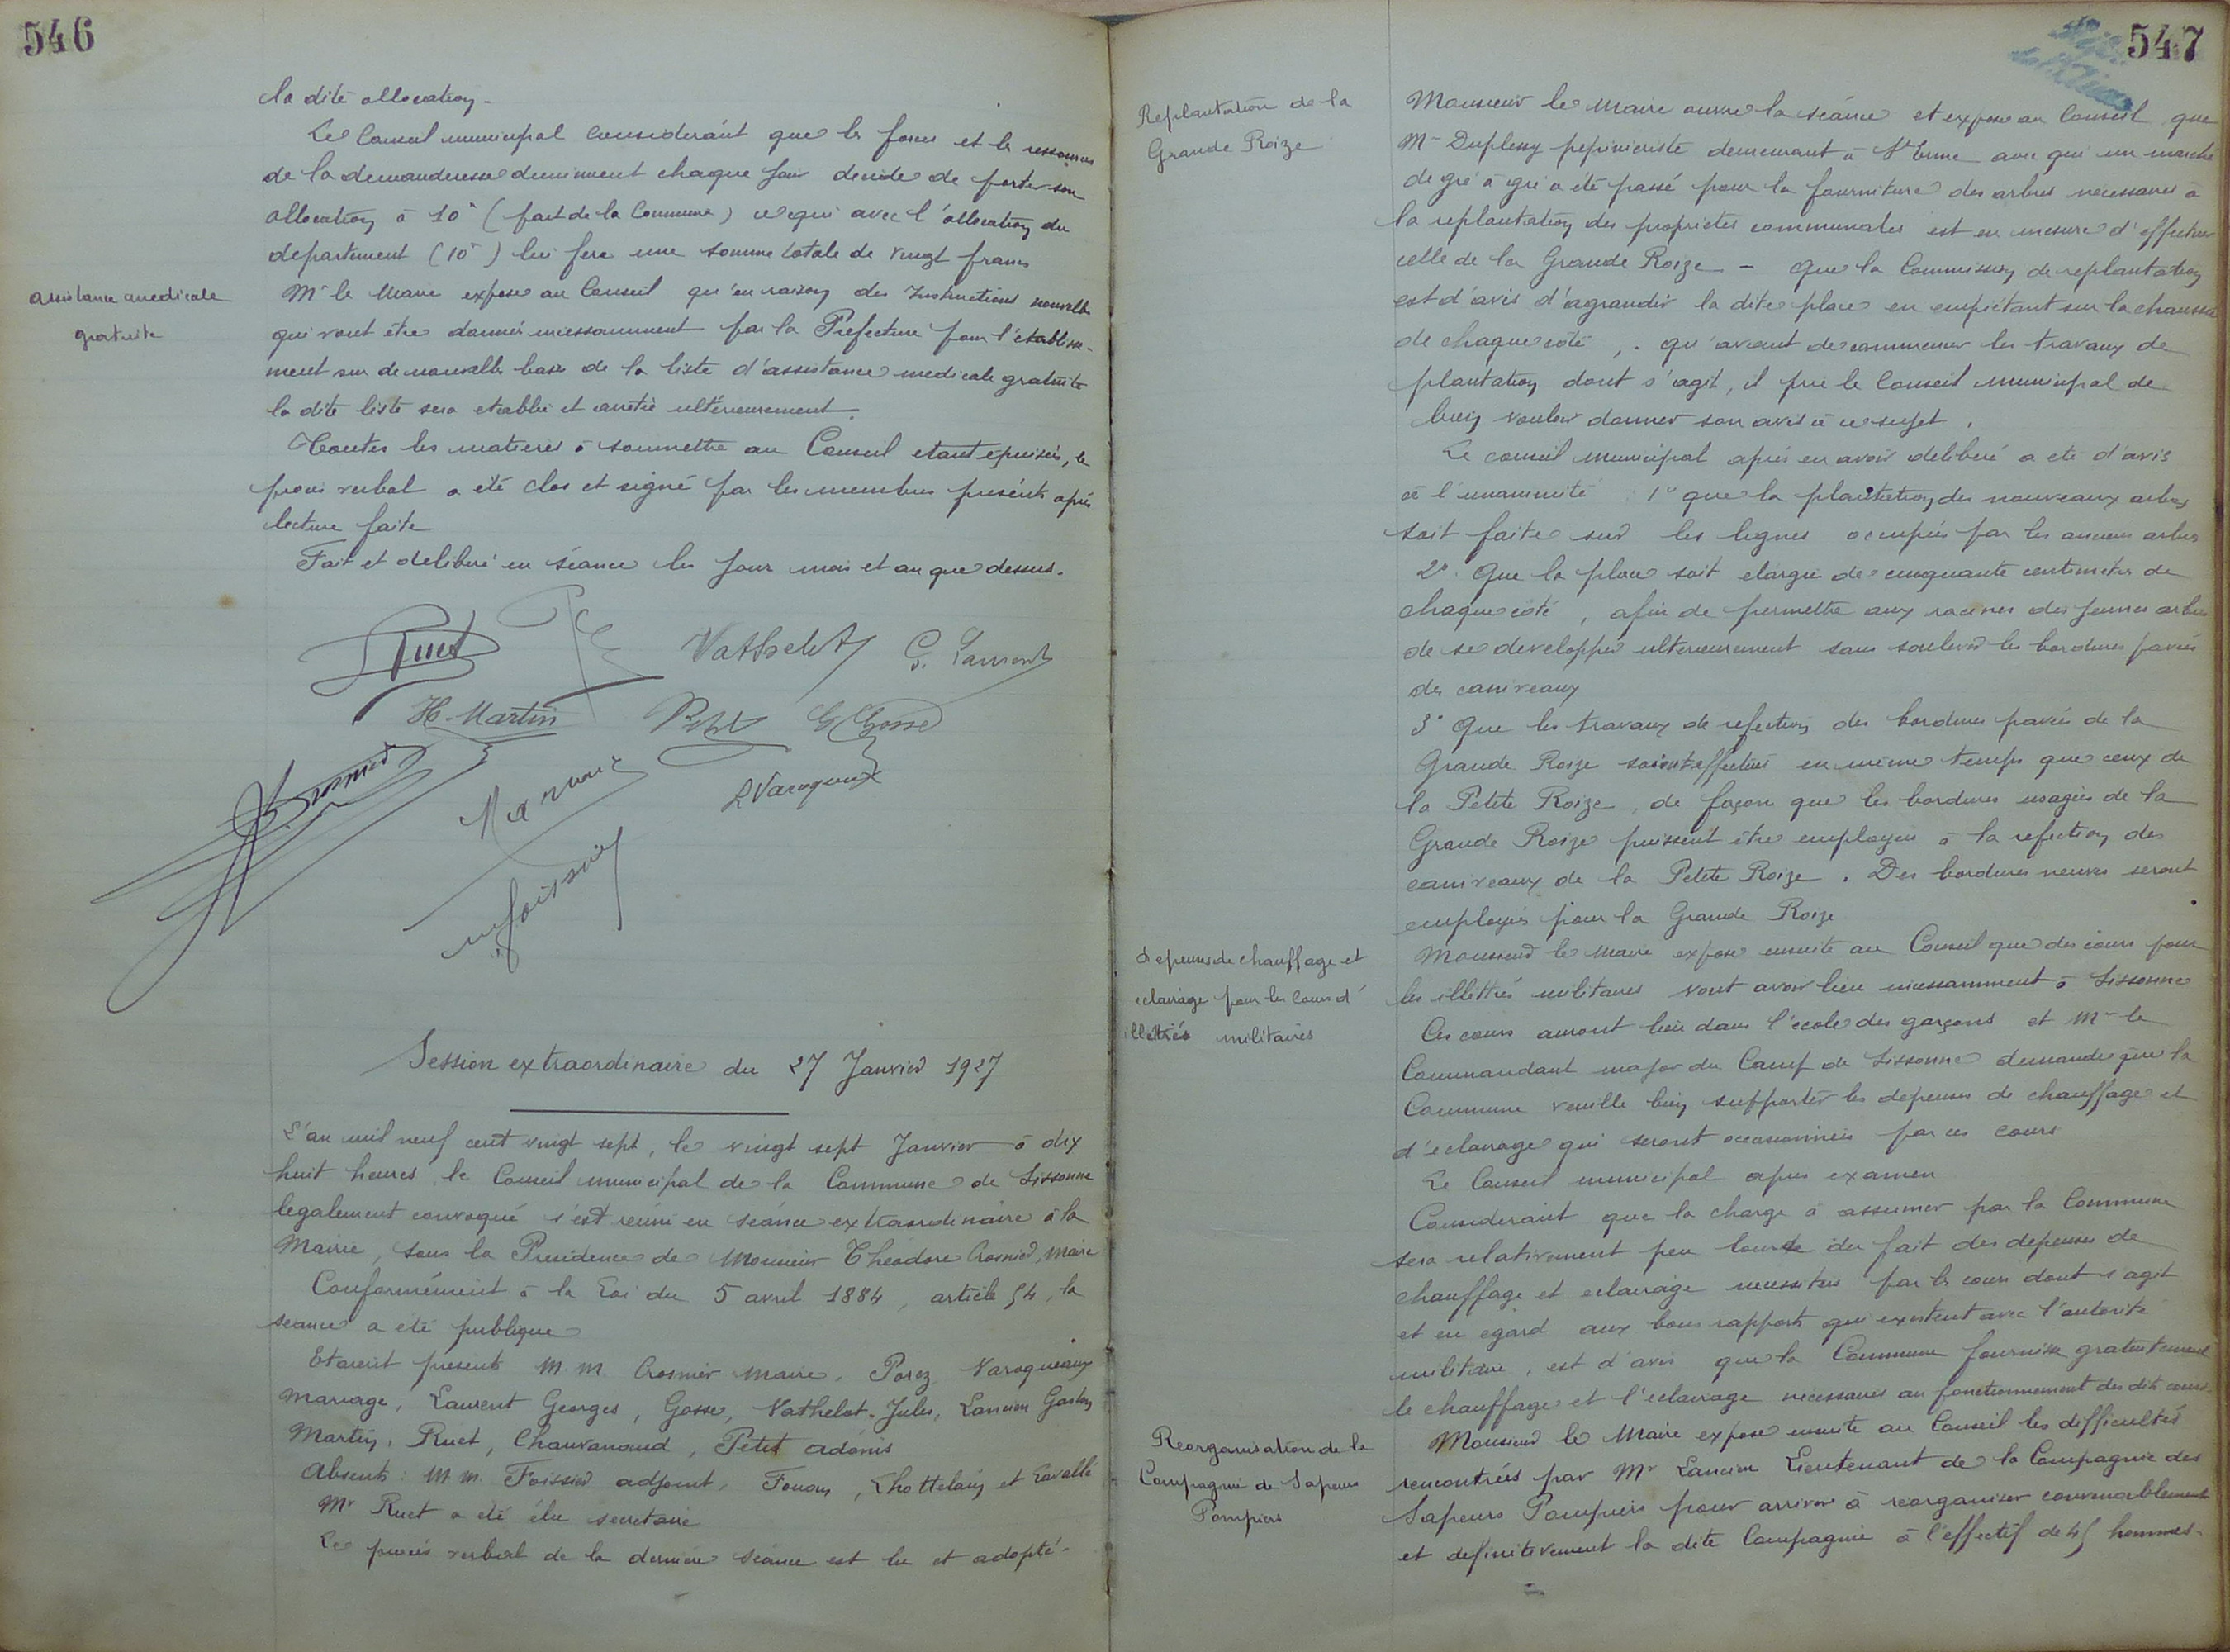 546
la dite allocation.
Le Conseil municipal considerant que les forces et les ressources
de la demanderesse diminuent chaque jour decide de porter son
allocation à 10f (part de la Commune) ce qui avec l'allocation du
departement (10f) lui fera une somme totale de vingt francs
assistance medicale
gratuite
Mr le Maire expose au Conseil qu'en raison des Instructions nouvelles
qui vont être données incessamment par la Prefecture pour l'établisse-
ment sur de nouvelles bases de la liste d'assistance medicale gratuite
la dite liste sera etablie et arrêtée ultérieurement.
Toutes les matieres à soumettre au Conseil etant épuisées, le
procès verbal a été clos et signé par les membres présents après
lecture faite
Fait et deliberé en séance les jour mois et an que dessus.
Ruet Vathelot G. Laurent
H. Martin Petit G Gosse
Crosnier Mariage L Varoqueaux
Foissier
Session extraordinaire du 27 Janvier 1927
L'an mil neuf cent vingt sept, le vingt sept Janvier à dix
huit heures, le Conseil municipal de la Commune de Sissonne
legalement convoqué s'est réuni en séance extraordinaire à la
Mairie, sous la Presidence de Monsieur Théodore Crosnier, Maire
Conformément à la Loi du 5 avril 1884, article 54, la
seance a été publique
Etaient présents M.M. Crosnier Maire, Porez Varoqueaux
Mariage, Laurent Georges, Gosse, Vathelot Jules, Lancien Gaston
Martin, Ruet, Chauvanaud, Petit adonis
Absents: M M. Foissier adjoint, Lhottelain et Lavallé
Mr Ruet a été élu secretaire
Le procès verbal de la derniere séance est lu et adopté.
547
Replantation de la
Grande Roize
Monsieur le Maire ouvre la séance et expose au Conseil que
Mr Duplessy pepinieriste demeurant à St Erme avec qui un marché
de gré à gré a été passé pour la fourniture des arbres necessaires à
la replantation des propriétés communales est en mesure d'effectuer
celle de la Grande Roize – que la Commission de replantation
est d'avis d'agrandir la dite place en empiétant sur la chaussée
de chaque côté, qu'avant de commencer les travaux de
plantation dont s'agit, il prie le Conseil municipal de
bien vouloir donner son avis à ce sujet.
Le conseil municipal après en avoir deliberé a été d'avis
à l'unanimité 1° que la plantation des nouveaux arbres
soit faite sur les lignes occupées par les anciens arbres
2° Que la place soit elargie de cinquante centimetres de
chaque côté, afin de permettre aux racines des jeunes arbres
de se developper ulterieurement sans soulever les bordures pavées
des caniveaux
3° Que les travaux de refection des bordures pavées de la
Grande Roize soient effectués en même temps que ceux de
la Petite Roize, de façon que les bordures usagées de la
Grande Roize puissent être employées à la refection des
caniveaux de la Petite Roize. Des bordures neuves seront
employées pour la Grande Roize
Depenses de chauffage et
eclairage pour les Cours d'
illettrés militaires
Monsieur le Maire expose ensuite au Conseil que des cours pour
les illettrés militaires vont avoir lieu incessamment à Sissonne
Ces cours auront lieu dans l'école des garçons et Mr le
Commandant major du Camp de Sissonne demande que la
Commune veuille bien supporter les depenses de chauffage et
d'éclairage qui seront occasionnées par ces cours
Le Conseil municipal après examen
Considerant que la charge à assumer par la Commune
sera relativement peu lourde du fait des depenses de
chauffage et eclairage necessitées par les cours dont s'agit
et eu egard aux bons rapports qui existent avec l'autorité
militaire, est d'avis que la Commune fournisse gratuitement
le chauffage et l'eclairage necessaires au fonctionnement des dits cours.
Reorganisation de la
Compagnie de Sapeurs
Pompiers
Monsieur le Maire expose ensuite au Conseil les difficultés
rencontrées par Mr Lancien Lieutenant de la Compagnie des
Sapeurs Pompiers pour arriver à reorganiser convenablement
et definitivement la dite Compagnie à l'effectif de 45 hommes.